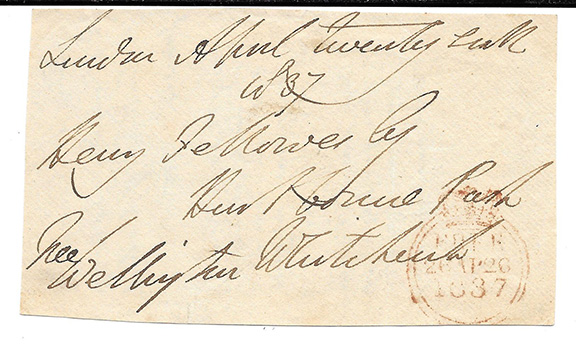 London April twenty sixth
1837
Henry Fellowes Esq
Hurstborne Park
Free Whitchurch
Wellington
FREE
26 AP 26
1837